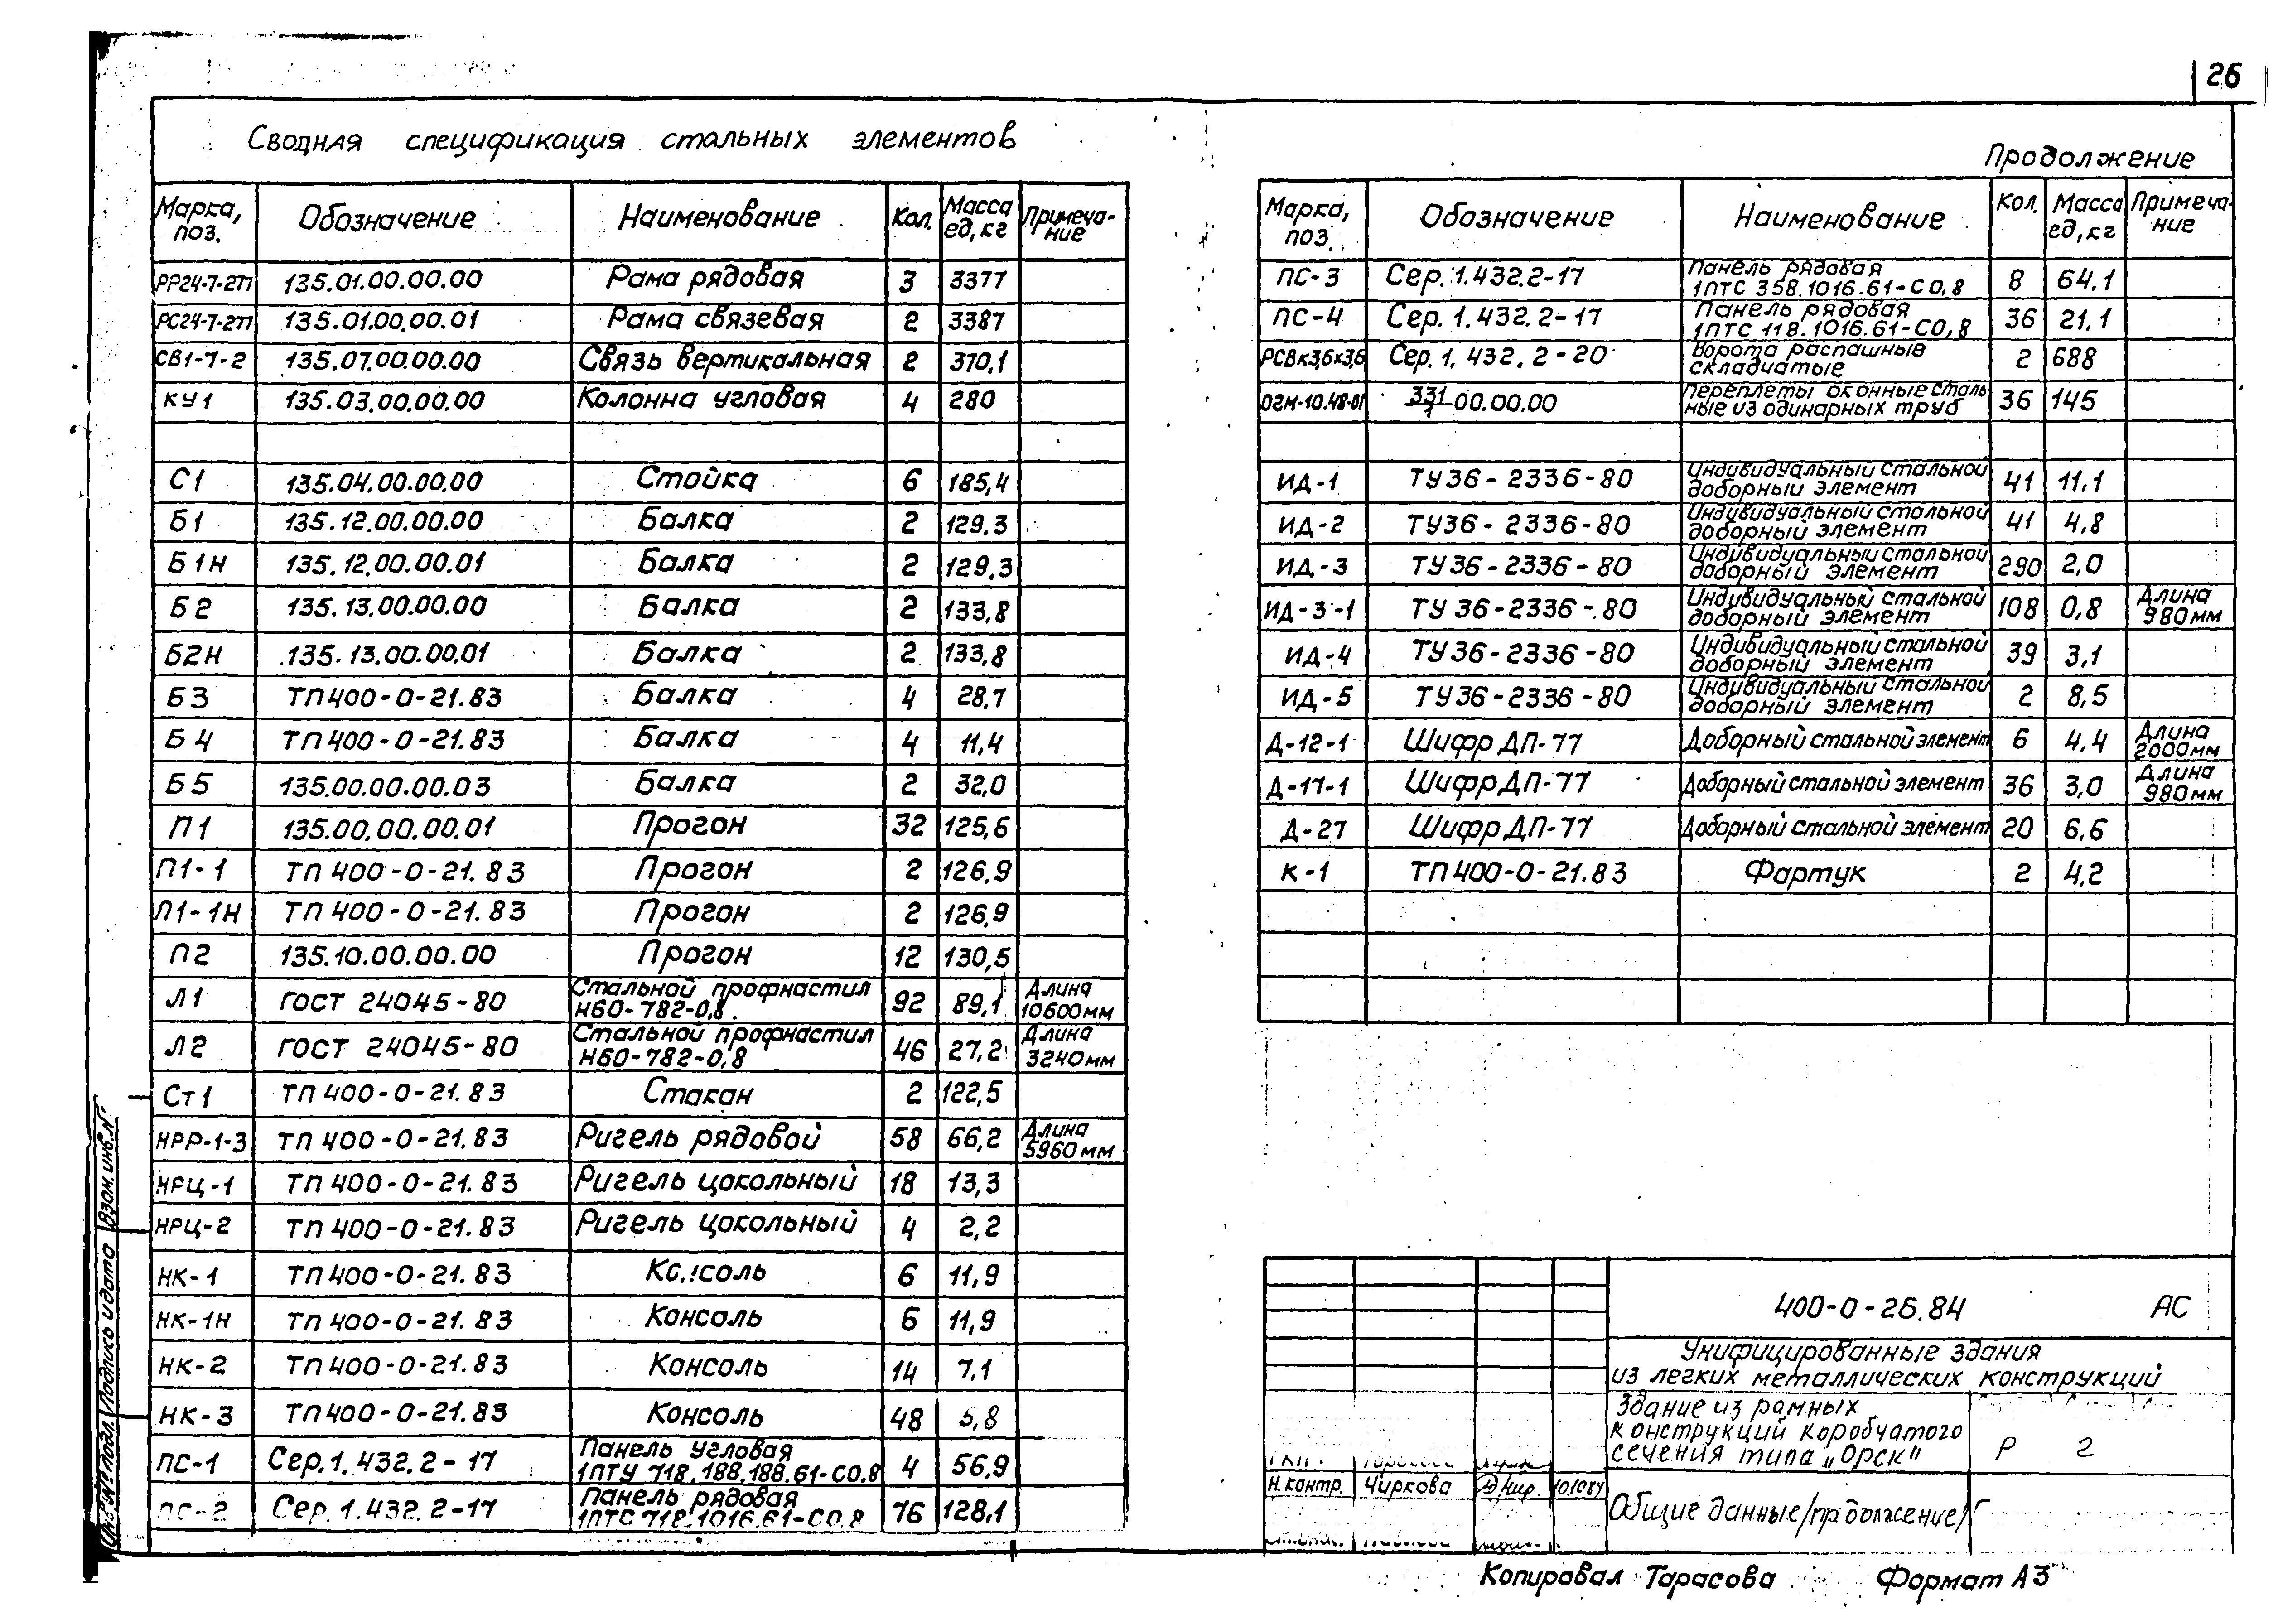 26
Сводная спецификация стальных элементов
Марка, поз. Обозначение Наименование Кол. Масса ед, кг Примеча-ние
РР24-7-277 135.01.00.00.00 Рама рядовая 3 3377
РС24-7-277 135.01.00.00.01 Рама связевая 2 3387
СВ1-7-2 135.07.00.00.00 Связь вертикальная 2 370,1
КУ1 135.03.00.00.00 Колонна угловая 4 280
С1 135.04.00.00.00 Стойка 6 185,4
Б1 135.12.00.00.00 Балка 2 129.3
Б1Н 135.12.00.00.01 Балка 2 129,3
Б2 135.13.00.00.00 Балка 2 133,8
Б2Н 135.13.00.00.01 Балка 2 133,8
Б3 ТП400-0-21.83 Балка 4 28,7
Б4 ТП400-0-21.83 Балка 4 11,4
Б5 135.00.00.00.03 Балка 2 32,0
П1 135.00.00.00.01 Прогон 32 125,6
П1-1 ТП 400-0-21.83 Прогон 2 126,9
П1-1Н ТП 400-0-21.83 Прогон 2 126,9
П2 135.10.00.00.00 Прогон 12 130,5
Л1 ГОСТ 24045-80 Стальной профнастил Н60-782-0,8. 92 89,1 Длина 10600мм
Л2 ГОСТ 24045-80 Стальной профнастил Н60-782-0,8 46 27,2 Длина 3240мм
Ст1 ТП 400-0-21.83 Стакан 2 122,5
НРР-1-3 ТП 400-0-21.83 Ригель рядовой 58 66,2 Длина 5960мм
НРЦ-1 ТП 400-0-21.83 Ригель цокольный 18 13,3
НРЦ-2 ТП 400-0-21.83 Ригель цокольный 4 2,2
НК-1 ТП400-0-21.83 Консоль 6 11,9
НК-1Н ТП 400-0-21.83 Консоль 6 11,9
НК-2 ТП400-0-21.83 Консоль 14 7,1
НК-3 ТП400-0-21.83 Консоль 48 5,8
ПС-1 Сер.1.432.2-17 Панель угловая 1ПТУ 718.188.188.61-С0.8 4 56,9
ПС-2 Сер.1.432.2-17 Панель рядовая 1ПТС 718.1016.61-С0.8 76 128,1
Продолжение
Марка, поз. Обозначение Наименование Кол. Масса ед, кг Примеча-ние
ПС-3 Сер.1.432.2-17 Панель рядовая 1ПТС 358.1016.61-С0,8 8 64.1
ПС-4 Сер.1.432.2-17 Панель рядовая 1ПТС 118.1016.61-С0,8 36 21.1
РСВк3,6х3,6 Сер.1.432.2-20 Ворота распашные складчатые 2 688
ОГМ-10.48-01 331/1 00.00.00 Переплеты оконные сталь ные из одинарных труб 36 145
ИД-1 ТУ36-2336-80 Индивидуальный стальной доборный элемент 41 11,1
ИД-2 ТУ36-2336-80 Индивидуальный стальной доборный элемент 41 4,8
ИД-3 ТУ36-2336-80 Индивидуальный стальной доборный элемент 290 2,0
ИД-3-1 ТУ 36-2336-80 Индивидуальный стальной доборный элемент 108 0,8 Длина 980мм
ИД-4 ТУ36-2336-80 Индивидуальный стальной доборный элемент 39 3,1
ИД-5 ТУ36-2336-80 Индивидуальный стальной доборный элемент 2 8,5
Д-12-1 Шифр ДП-77 Доборный стальной элемент 6 4,4 Длина 2000мм
Д-17-1 Шифр ДП-77 Доборный стальной элемент 36 3,0 Длина 980мм
Д-27 Шифр ДП-77 Доборный стальной элемент 20 6,6
К-1 ТП400-0-21.83 Фартук 2 4,2
400-0-26.84 АС
Унифицированные здания
из легких металлических конструкций
Здание из рамных
конструкций коробчатого
сечения типа „Орск"
Р 2
Н.контр. Чиркова
Общие данные /продолжение/
Копировал Тарасова Формат А3
Подпись и дата
Взам.инв.№